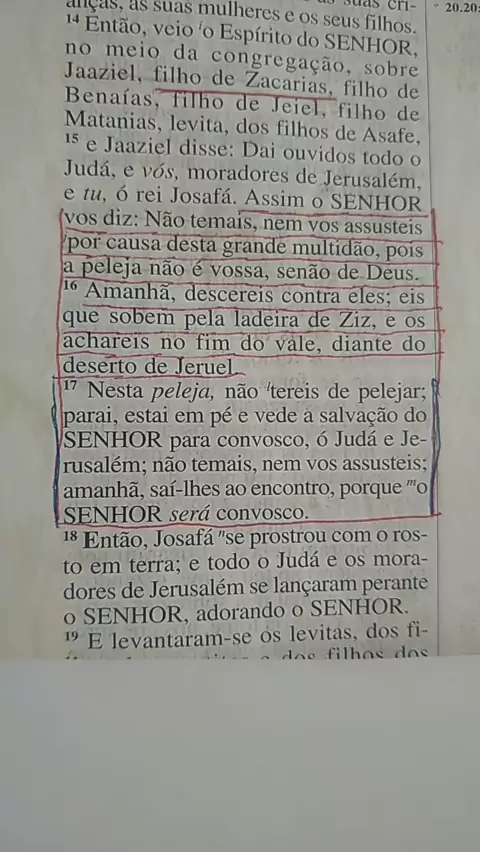 anças, as suas mulheres e os seus filhos.
14 Então, veio i o Espírito do SENHOR,
no meio da congregação, sobre
Jaaziel, filho de Zacarias, filho de
Benaías, filho de Jeiel, filho de
Matanias, levita, dos filhos de Asafe,
15 e Jaaziel disse: Dai ouvidos todo o
Judá, e vós, moradores de Jerusalém,
e tu, ó rei Josafá. Assim o SENHOR
vos diz: Não temais, nem vos assusteis
j por causa desta grande multidão, pois
a peleja não é vossa, senão de Deus.
16 Amanhã, descereis contra eles; eis
que sobem pela ladeira de Ziz, e os
achareis no fim do vale, diante do
deserto de Jeruel.
17 Nesta peleja, não l tereis de pelejar;
parai, estai em pé e vede a salvação do
SENHOR para convosco, ó Judá e Je-
rusalém; não temais, nem vos assusteis;
amanhã, saí-lhes ao encontro, porque m o
SENHOR será convosco.
18 Então, Josafá n se prostrou com o ros-
to em terra; e todo o Judá e os mora-
dores de Jerusalém se lançaram perante
o SENHOR, adorando o SENHOR.
19 E levantaram-se os levitas, dos fi-
e dos filhos dos
20.20